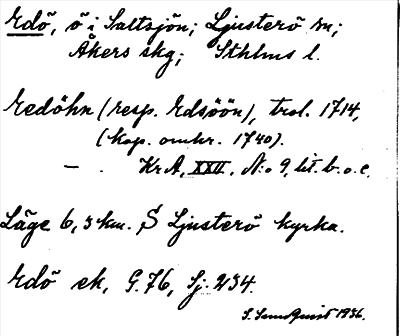 Edö, ö i Saltsjön; Ljusterö sn;
Åkers skg; Sthlms l.
Eedöhn (resp. Edsöön), trol. 1714,
(kop. omkr. 1740).
— . KrA, XXII, N:o 9, lit. b. o. c.
Läge 6,3 km. S Ljusterö kyrka.
Edö ek, G. 76, Sj. 234.
S. Sundquist 1936.